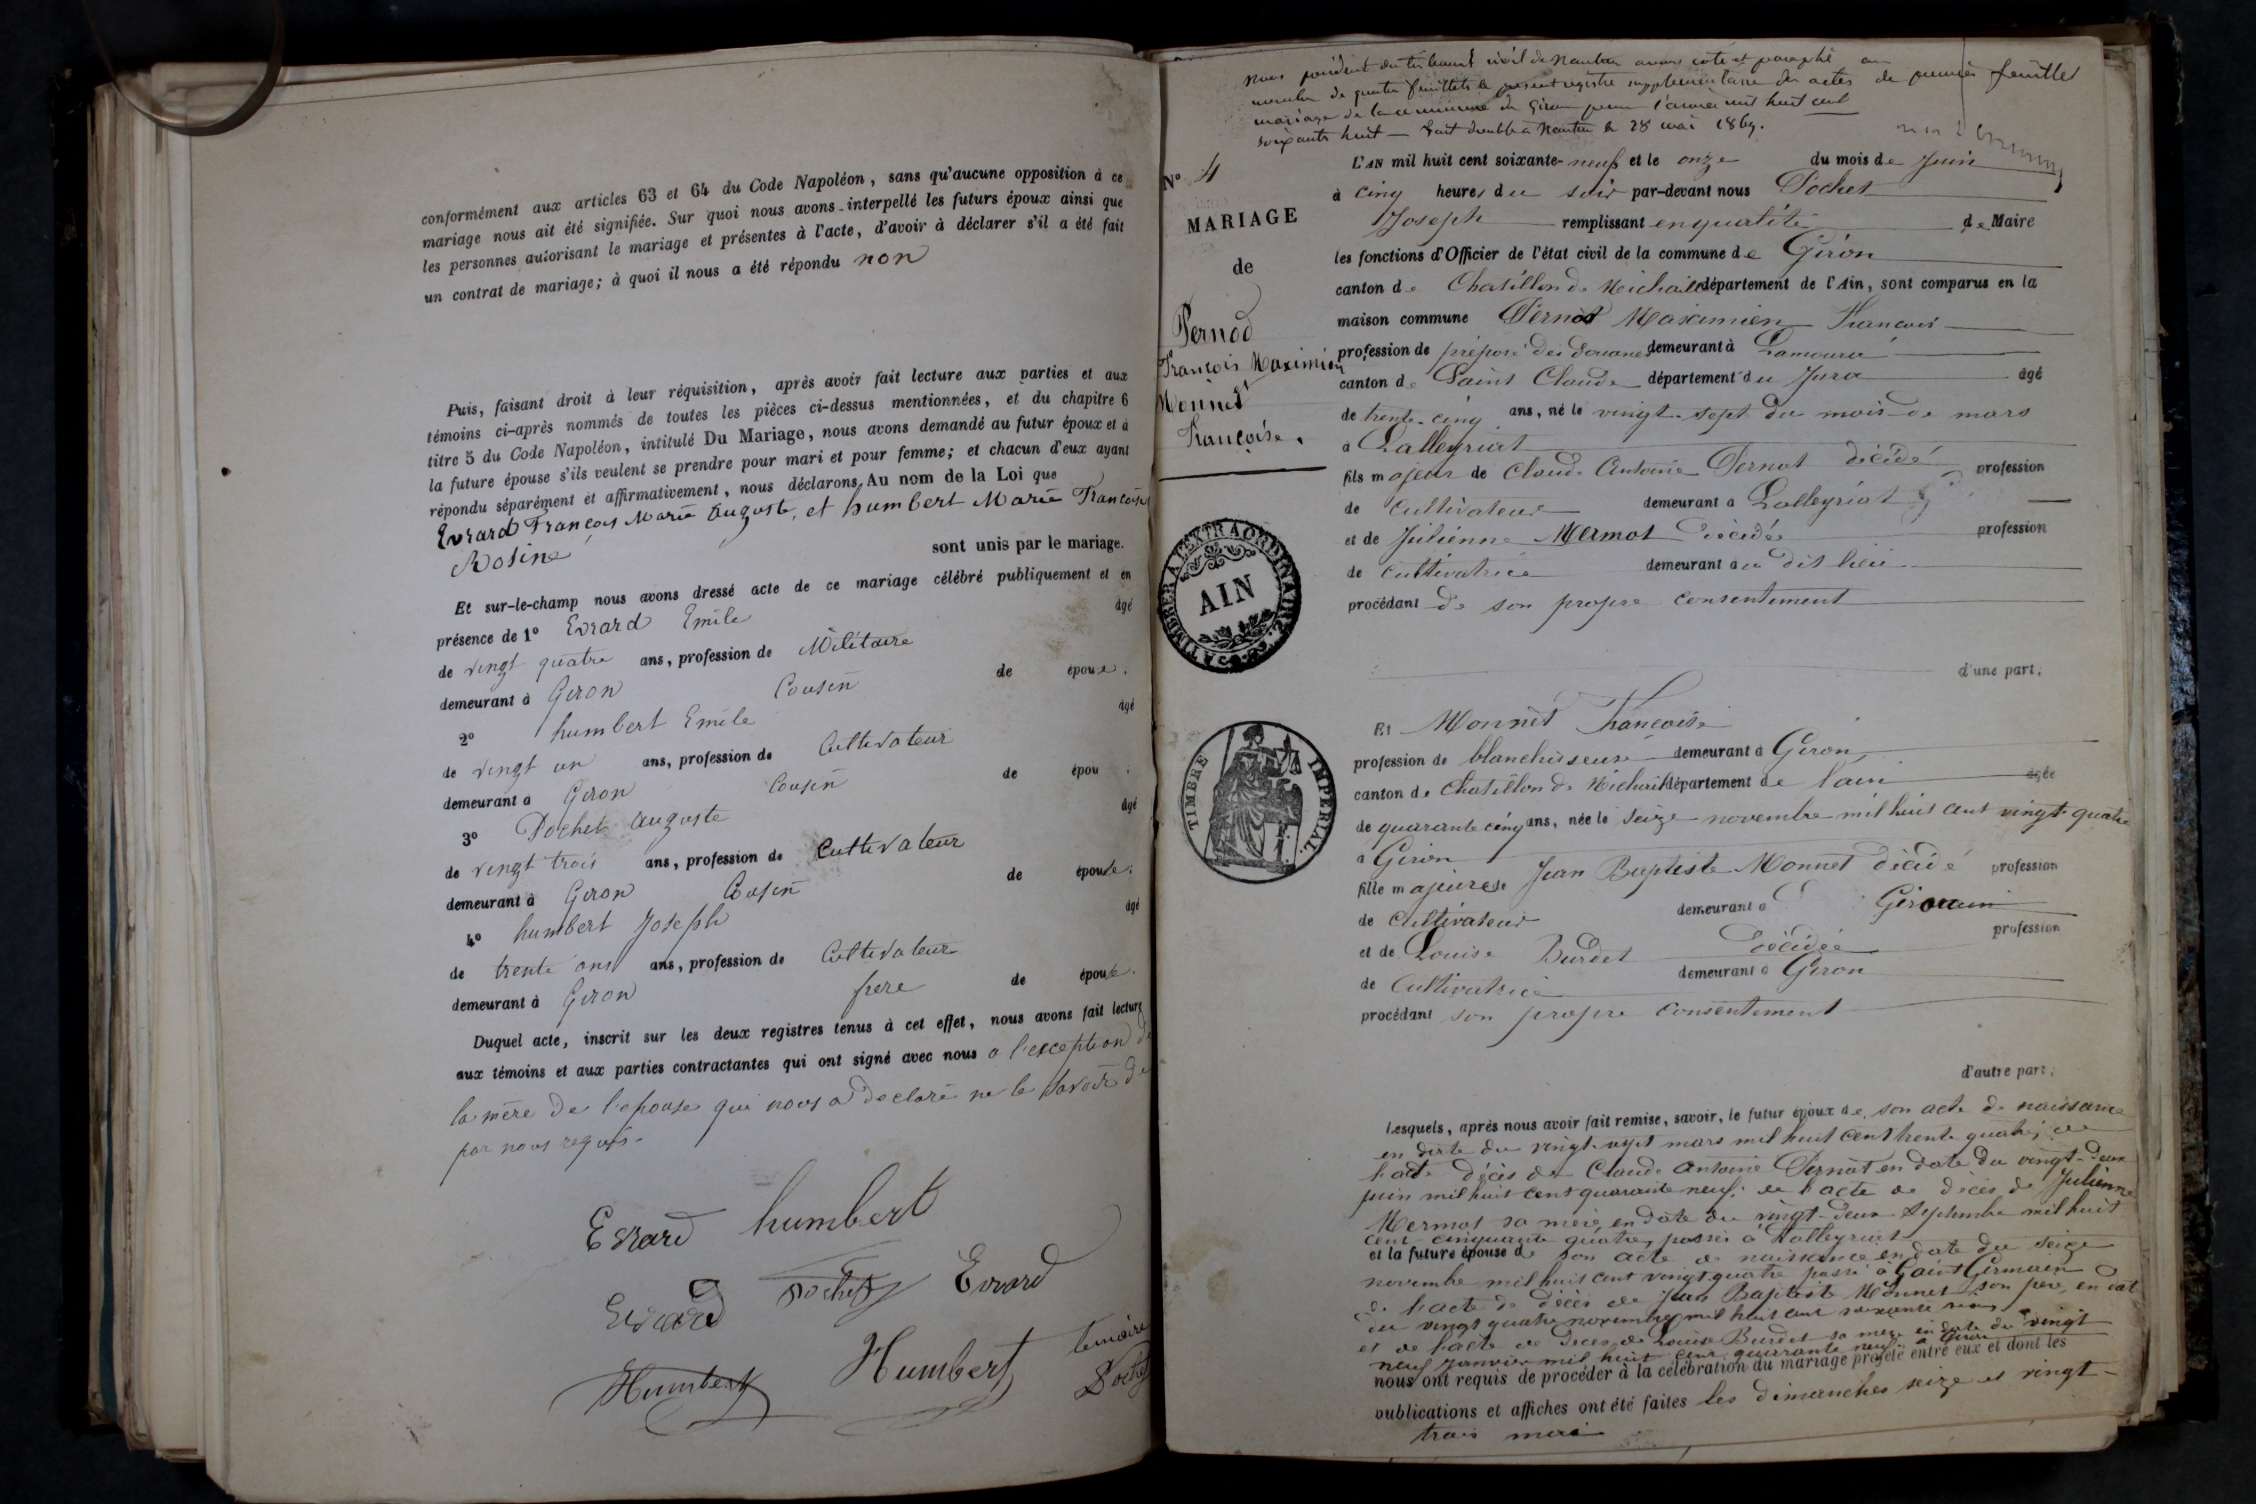 conformément aux articles 63 et 64 du Code Napoléon, sans qu'aucune opposition à ce
mariage nous ait été signifiée. Sur quoi nous avons interpellé les futurs époux ainsi que
les personnes autorisant le mariage et présentes à l'acte, d'avoir à déclarer s'il a été fait
un contrat de mariage; à quoi il nous a été répondu non
Puis, faisant droit à leur réquisition, après avoir fait lecture aux parties et aux
témoins ci-après nommés de toutes les pièces ci-dessus mentionnées, et du chapitre 6
titre 5 du Code Napoléon, intitulé Du Mariage, nous avons demandé au futur époux et à
la future épouse s'ils veulent se prendre pour mari et pour femme; et chacun d'eux ayant
répondu séparément et affirmativement, nous déclarons Au nom de la Loi que
Evrard François Marie Auguste, et humbert Marie Françoise
Rosine
sont unis par le mariage.
Et sur-le-champ nous avons dressé acte de ce mariage célébré publiquement et en
présence de 1° Evrard Emile âgé
de vingt quatre ans, profession de Militaire
demeurant à Giron Cousin de épouse.
2° humbert Emile âgé
de vingt un ans, profession de Cultivateur
demeurant à Giron Cousin de épou .
3° Pochet auguste âgé
de vingt trois ans, profession de Cultivateur
demeurant à Giron Cousin de épouse.
4° humbert Joseph âgé
de trente ans ans, profession de Cultivateur
demeurant à Giron frere de épouse.
Duquel acte, inscrit sur les deux registres tenus à cet effet, nous avons fait lecture
aux témoins et aux parties contractantes qui ont signé avec nous a l'exception de
la mère de l'epouse qui nous a declaré ne le savoir de
par nous requis.
Evrard humbert
Evrard Pochet Evrard
Humbert Humbert le maire
Pochet
Nous président du tribunal civil de Nantua avons coté et paraphé au
nombre de quatre feuillets le present registre supplémentaire des actes de premier feuille
mariage de la commune de Giron pour l'année mil huit cent
soixante huit — Fait double a Nantua le 28 mai 1869.
N° 4
MARIAGE
de
Pernod
François Maximien
et
Monnet
Françoise.
A TIMBRER A L'EXTRAORDINAIRE
AIN
TIMBRE IMPERIAL
L'AN mil huit cent soixante-neuf et le onze du mois de Juin
à cinq heures du soir par-devant nous Pochet
Joseph remplissant en qualité de Maire
les fonctions d'Officier de l'état civil de la commune de Giron
canton de Chatillon de Michaille département de l'Ain, sont comparus en la
maison commune Pernod Maximien François
profession de préposé des douanes demeurant à Lamoura
canton de Saint Claude département du Jura âgé
de trente-cinq ans, né le vingt-sept du mois de mars
à Lalleyriat
fils majeur de Claude Antoine Pernot décédé profession
de cultivateur demeurant à Lalleyriat
et de Julienne Mermot décédée profession
de cultivatrice demeurant au dit lieu
procédant de son propre consentement
d'une part;
Et Monnet Françoise
profession de blanchisseuse demeurant à Giron
canton de Chatillon de Michaille département de l'ain âgée
de quarante cinq ans, née le seize novembre mil huit cent vingt-quatre
à Giron
fille majeure de Jean Baptiste Monnet décédé profession
de cultivateur demeurant à
et de Louise Burdet décédée profession
de cultivatrice demeurant à Giron
procédant son propre consentement
d'autre part;
Lesquels, après nous avoir fait remise, savoir, le futur époux de son acte de naissance
en date du vingt-sept mars mil huit cent trente quatre; de
l'acte décès de Claude Antoine Pernot en date du vingt-deux
juin mil huit cent quarante neuf; de l'acte de décès de Julienne
Mermot sa mère en date du vingt-deux Septembre mil huit
cent cinquante quatre, passés à Lalleyriat
et la future épouse de son acte de naissance en date du seize
novembre mil huit cent vingt quatre passé à Saint Germain
de l'acte de décès de Jean Baptiste Monnet son père, en date
du vingt quatre novembre mil huit cent soixante
et de l'acte de décès de Louise Burdet sa mère en date du vingt
neuf Janvier mil huit cent quarante neuf à Giron
nous ont requis de procéder à la célébration du mariage projeté entre eux et dont les
publications et affiches ont été faites les dimanches seize et vingt-
trois mai